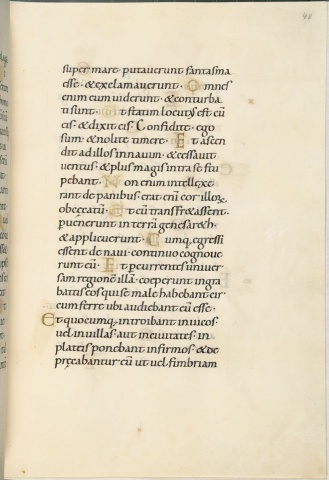 48
super mare putauerunt fantasma
esse · & exclamauerunt · Omnes
enim eum uiderunt · & conturba
ti sunt · Et statim locutus est cũ
eis · & dixit eis · Confidite · ego
sum · & nolite timere · Et ascen
dit ad illos in nauim · & cessauit
uentus · & plus magis intra se stu
pebant · Non enim intellexe
rant de panibus · erat enĩ cor illoꝝ
obcecatũ · Et cũ transfr&assent ·
puenerunt in terrã genesar&h ·
& applicuerunt · Cumq, egressi
essent de naui · continuo cognoue
runt eũ · Et pcurrentes uniuer
sam regionẽ illã · coeperunt in gra
batis eos qui se male habebant cir
cum ferre ubi audiebant eũ esse ·
Et quocumq, introibant in uicos ·
uel in uillas · aut in ciuitates · in
plateis ponebant infirmos · & de
pręcabantur eũ ut uel fimbriam